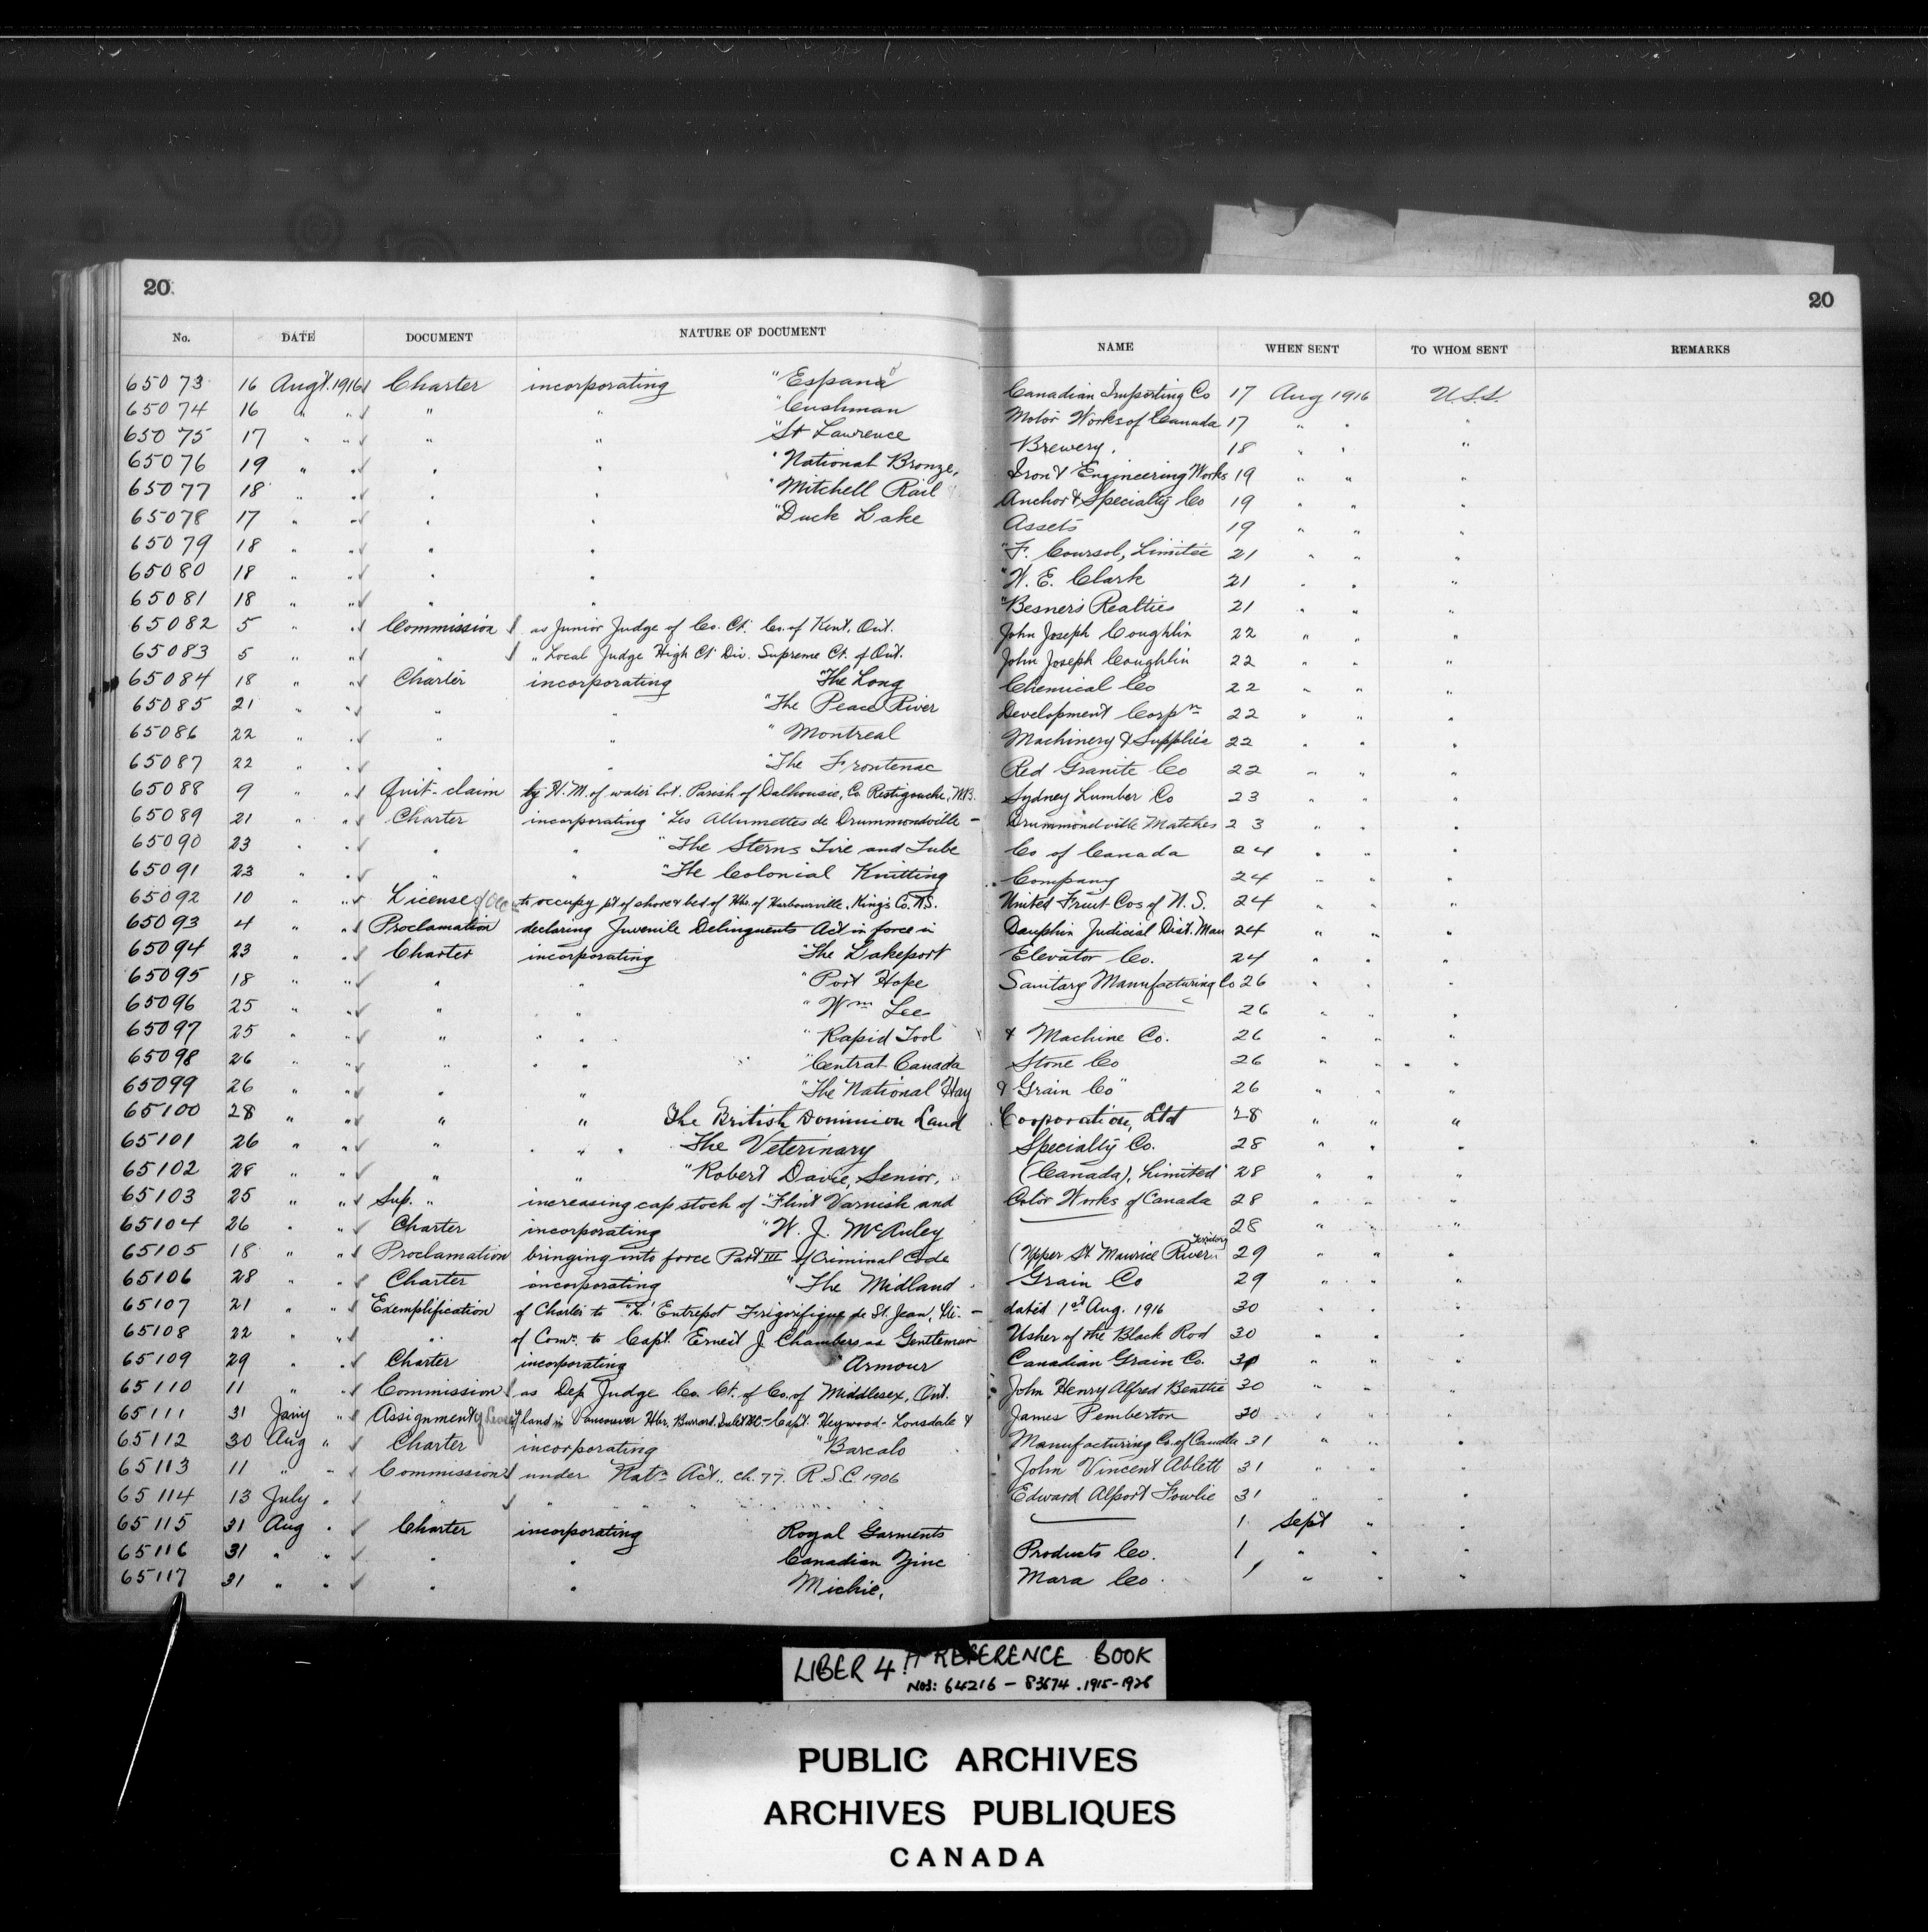 20 20
No. DATE DOCUMENT NATURE OF DOCUMENT NAME WHEN SENT TO WHOM SENT REMARKS
65073 16 Augt. 1916 Charter incorporating "Espana Canadian Importing Co 17 Aug 1916 U.S.S.
65074 16 " " " " "Cushman Motor Works of Canada 17 " " "
65075 17 " " " " "St Lawrence Brewery. 18 " " "
65076 19 " " " " "National Bronze, Iron & Engineering Works 19 " " "
65077 18 " " " " "Mitchell Rail Anchor & Specialty Co 19 " " "
65078 17 " " " " "Duck Lake Assets 19 " " "
65079 18 " " " " "F. Coursol, Limitée 21 " " "
65080 18 " " " " "W. E. Clark 21 " " "
65081 18 " " " " "Besner's Realties 21 " " "
65082 5 " " Commission as Junior Judge of Co. Ct. Co. of Kent, Ont. John Joseph Coughlin 22 " " "
65083 5 " " " " Local Judge High Ct Div. Supreme Ct. of Ont. John Joseph Coughlin 22 " " "
65084 18 " " Charter incorporating "The Long Chemical Co 22 " " "
65085 21 " " " " "The Peace River Development Corpn 22 " " "
65086 22 " " " " "Montreal Machinery & Supplies 22 " " "
65087 22 " " " " "The Frontenac Red Granite Co 22 " " "
65088 9 " " Quit-claim by H.M. of water lot. Parish of Dalhousie, Co. Restigouche, N.B. Sydney Lumber Co 23 " " "
65089 21 " " Charter incorporating "Les Allumettes de Drummondville - Drummondville Matches 23 " " "
65090 23 " " " " "The Sterns Tire and Tube Co of Canada 24 " " "
65091 23 " " " " "The Colonial Knitting Company 24 " " "
65092 10 " " License of Occ to occupy pt of shore & bed of Hbr. of Harbourville, King's Co. N.S. United Fruit Cos of N.S. 24 " " "
65093 4 " " Proclamation declaring Juvenile Delinquents Act in force in Dauphin Judicial Dist. Man 24 " " "
65094 23 " " Charter incorporating "The Lakeport Elevator Co. 24 " " "
65095 18 " " " " "Port Hope Sanitary Manufacturing Co 26 " " "
65096 25 " " " " "Wm Lee 26 " " "
65097 25 " " " " "Rapid Tool & Machine Co. 26 " " "
65098 26 " " " " "Central Canada Stone Co 26 " " "
65099 26 " " " " "The National Hay & Grain Co" 26 " " "
65100 28 " " " " The British Dominion Land Corporation, Ltd 28 " " "
65101 26 " " " " The Veterinary Specialty Co. 28 " " "
65102 28 " " " " "Robert Davie, Senior, (Canada), Limited" 28 " " "
65103 25 " " Sup. " increasing cap stock of "Flint Varnish and Color Works of Canada 28 " " "
65104 26 " " Charter incorporating "W. J. McAuley 28 " " "
65105 18 " " Proclamation bringing into force Part III of Criminal Code (Upper St. Maurice River Territory 29 " " "
65106 28 " " Charter incorporating "The Midland Grain Co 29 " " "
65107 21 " " Exemplification of Charter to "L'Entrepot Frigorifique de St. Jean, Ltée. - dated 1st Aug. 1916 30 " " "
65108 22 " " " of Comn. to Capt. Ernest J. Chambers as Gentleman Usher of the Black Rod 30 " " "
65109 29 " " Charter incorporating "Armour Canadian Grain Co. 30 " " "
65110 11 " " Commission as Dep Judge Co. Ct. of Co. of Middlesex, Ont. John Henry Alfred Beattie 30 " " "
65111 31 Jany " Assignment of Lease of land in Vancouver Hbr. Burrard Inlet B.C. - Capt. Heywood-Lonsdale & James Pemberton 30 " " "
65112 30 Aug " Charter incorporating "Barcalo Manufacturing Co. of Canada 31 " " "
65113 11 " " Commission under Natn Act., ch. 77. R.S.C. 1906 John Vincent Ablett 31 " " "
65114 13 July " " " " " " " " Edward Alport Fowlie 31 " " "
65115 31 Aug " Charter incorporating Royal Garments 1 Sept " "
65116 31 " " " " Canadian Zinc Products Co. 1 " " "
65117 31 " " " " Michie, Mara Co. 1 " " "
LIBER 4 REFERENCE BOOK
Nos: 64216 - 83674. 1915-1926
PUBLIC ARCHIVES
ARCHIVES PUBLIQUES
CANADA